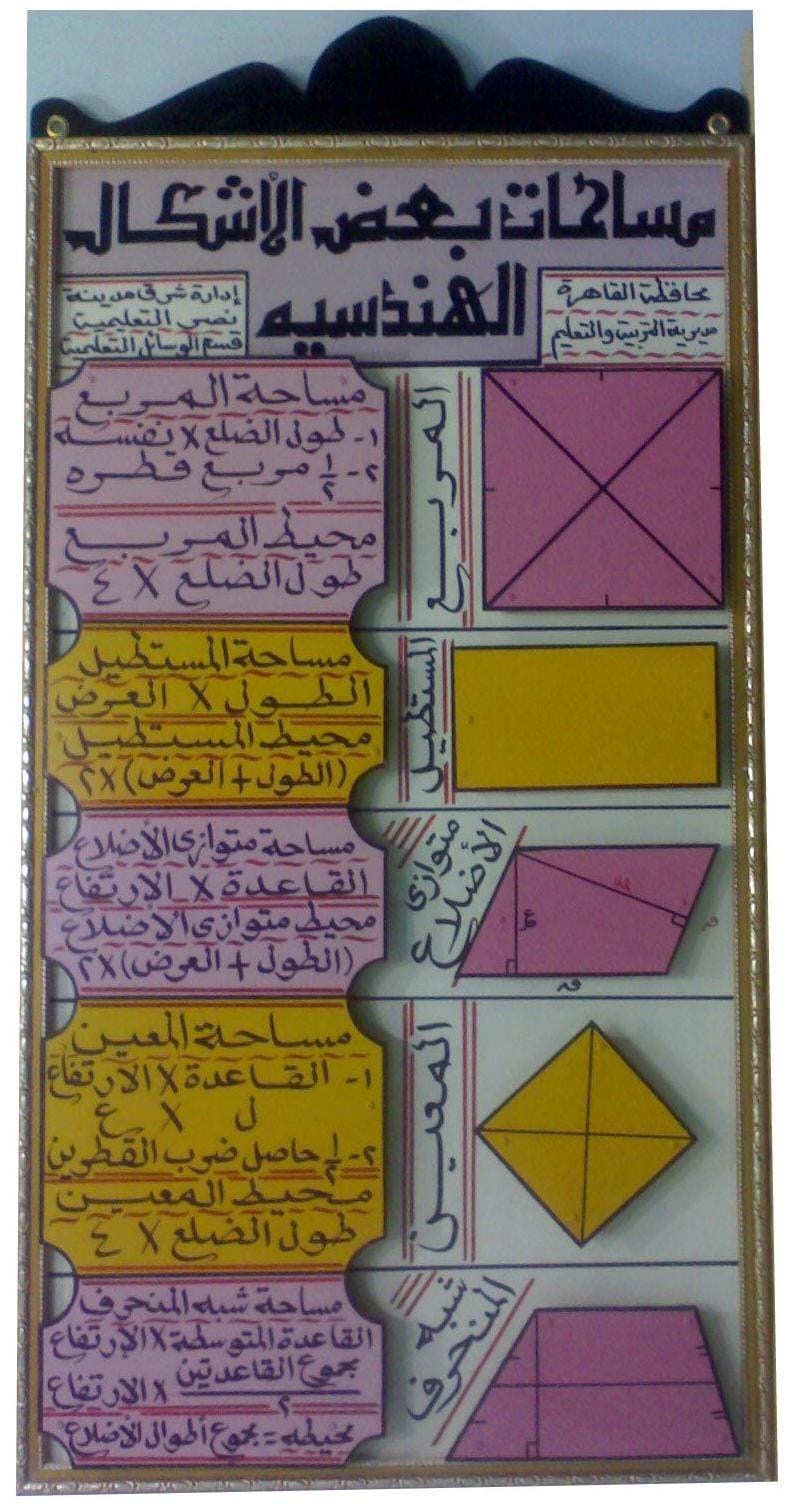 مساحات بعض الأشكال
الهندسيه
محافظة القاهرة
مديرية التربية والتعليم
إدارة شرق مدينة
نصر التعليمية
قسم الوسائل التعليمية
المربع
مساحة المربع
١- طول الضلع X نفسه
٢- ١/٢ مربع قطره
محيط المربع
طول الضلع X ٤
المستطيل
مساحة المستطيل
الطول X العرض
محيط المستطيل
(الطول + العرض) X٢
متوازى
الأضلاع
مساحة متوازى الأضلاع
القاعدة X الإرتفاع
محيط متوازى الأضلاع
(الطول + العرض) X٢
المعين
مساحة المعين
١- القاعدة X الارتفاع
ل X ع
٢- ١/٢ حاصل ضرب القطرين
محيط المعين
طول الضلع X ٤
شبه
المنحرف
مساحة شبه المنحرف
القاعدة المتوسطة X الإرتفاع
مجموع القاعدتين
٢
X الارتفاع
محيطه = مجموع أطوال الأضلاع